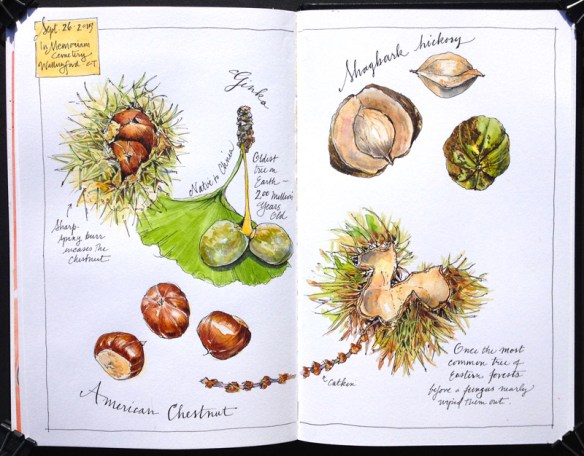 Sept. 26 - 2019
In Memoriam
Cemetery
Wallingford CT.
Ginko
Native to China
Oldest
tree on
Earth -
200 million
Years
Old
Sharp
spiny burr
encases the
Chestnut
American Chestnut
Shagbark hickory
Catkin
Once the most
common tree of
Eastern forests
before a fungus nearly
wiped them out.